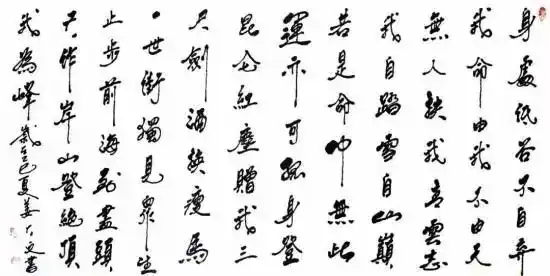 身處低谷不自弃
我命由我不由天
無人扶我青雲志
我自踏雪自山巔
若是命中無此
運亦可孤身登
昆仑紅塵贈我三
尺劍酒扶瘦馬
一世街獨見眾生
止步前海到盡頭
天作岸山登絶頂
我為峰歲在乙巳夏姜書